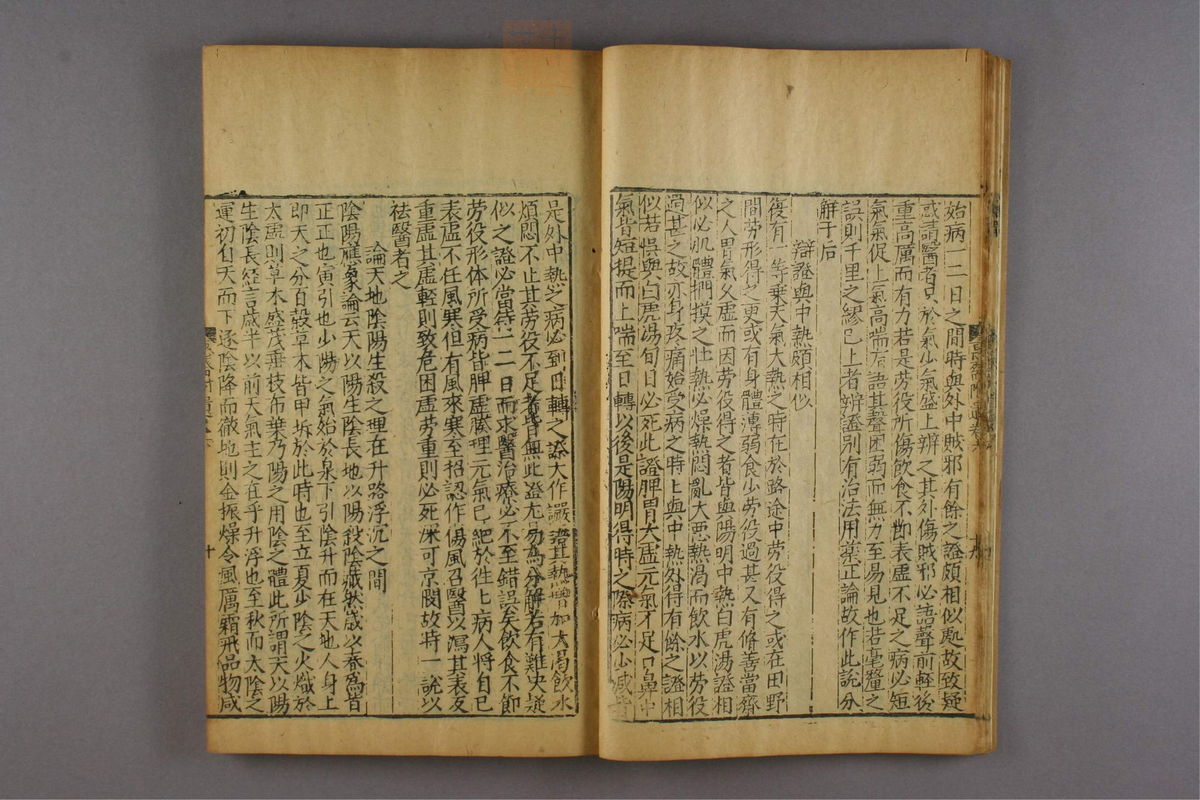 始病一二日之間時與外中賊邪有餘之證頗相似處故致疑
惑請醫者只於氣少氣盛上辨之其外傷賊邪必語聲前輕後
重高厲而有力若是勞役所傷飲食不節表虛不足之病必短
氣氣促上氣高喘有語其聲困弱而無力至易見也若毫釐之
誤則千里之繆已上者辨證別有治法用藥正論故作此說分
解于后
辯證與中熱頗相似
復有一等乘天氣大熱之時在於路途中勞役得之或在田野
間勞形得之更或有身體薄弱食少勞役過甚又有脩善當齋
之人胃氣久虛而因勞役得之者皆與陽明中熱白虎湯證相
似必肌體捫摸之壯熱必燥熱悶亂大惡熱渴而飲水以勞役
過甚之故亦身疼痛始受病之時上與中熱外得有餘之證相
似若悞與白虎湯旬日必死此證脾胃大虛元氣不足口鼻中
氣皆短提而上喘至日轉以後是陽明得時之際病必少減若
是外中熱之病必到日轉之際大作譫語其熱增加大渴飲水
煩悶不止其勞役不足者皆無此證尤易為分解若有難决疑
似之證必當待一二日而求醫治療必不至錯誤矣飲食不節
勞役形体所受病皆脾虛䐃理元氣已絕於上病人將自已
表虛不任風寒但有風來寒至招認作傷風召醫以瀉其表友
重虛其虛輕則致危困虛勞重則必死深可京閔故特一說以
祛醫者之
論天地陰陽生殺之理在升降浮沉之間
陰陽應象論云天以陽生陰長地以陽殺陰藏然歲以春爲首
正正也寅引也少陽之氣始於泉下引陰升而在天地人身上
即天之分百穀草木皆甲坼於此時也至立夏少陰之火熾於
太虛則草木盛茂垂枝布葉乃陽之用陰之體此所謂天以陽
生陰長經言歲半以前天氣主之在乎升浮也至秋而太陰之
運初自天而下逐陰降而徹地則金振燥令風厲霜飛品物咸
十